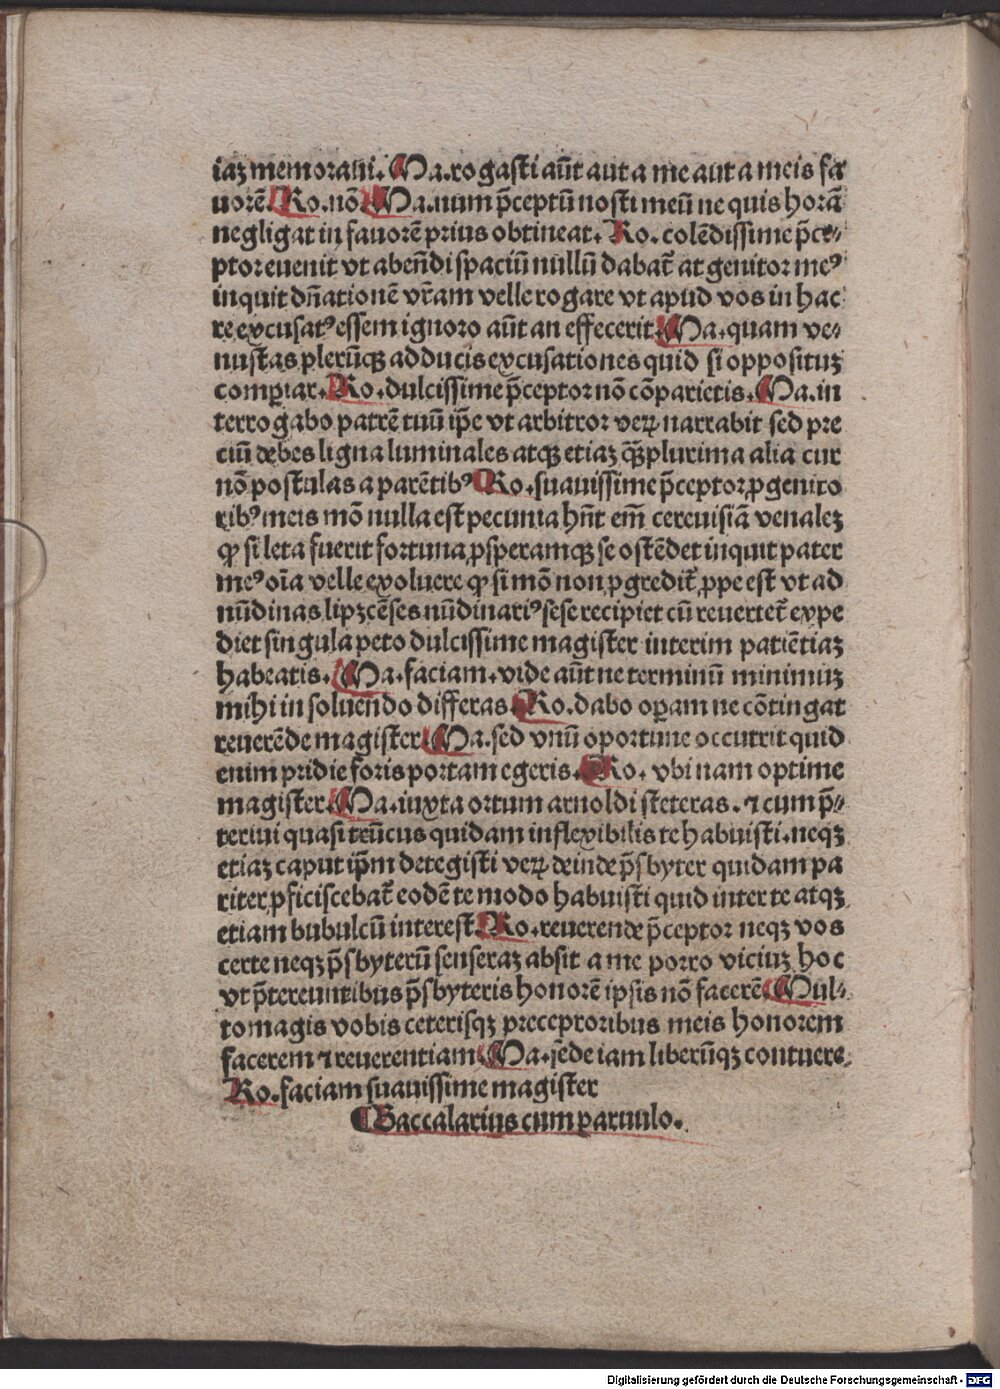 iaꝫ memoraui. Ma. rogasti aūt aut a me aut a meis fa
uorē. Ro. nō Ma. num p̄ceptū nosti meū ne quis horā
negligat in fauorē prius obtineat. Ro. colēdissime p̄ce⸗
ptor euenit vt abeūdi spaciū nullū dabat̄ at genitor meꝰ
inquit dn̄ationē vr̄am velle rogare vt apud vos in hac
re excusatꝰ essem ignoro aūt an effecerit. Ma. quam ve⸗
nustas plerūqꝫ adducis excusationes quid si opposituꝫ
comꝑiar. Ro. dulcissime p̄ceptor nō cōparietis. Ma. in
terrogabo patrē tuū ip̄e vt arbitror veꝝ narrabit sed pre
ciū debes ligna luminales atqꝫ etiaꝫ qꝫ̄plurima alia cur
nō postulas a parētibꝰ Ro. suauissime p̄ceptor ꝓgenito
ribꝰ meis mō nulla est pecunia hn̄t em̄ cereuisiā venaleꝫ
ꝙ si leta fuerit fortuna ꝓsperamqꝫ se ostēdet inquit pater
meꝰ oīa velle exoluere ꝙ si mō non ꝓgredit̄ ꝓpe est vt ad
nūdinas lipꝫcēses nūdinariꝰ sese recipiet cū reuertet̄ expe
diet singula peto dulcissime magister interim patiētiaꝫ
habeatis. Ma. faciam. vide aūt ne terminū minimuꝫ
mihi in soluendo differas. Ro. dabo oꝑam ne cōtingat
reuerēde magister Ma. sed vnū oportune occurrit quid
enim pridie foris portam egeris. Ro. vbi nam optime
magister. Ma. iuxta ortum arnoldi steteras. ⁊ cum p̄⸗
teriui quasi trūcus quidam inflexibilis te habuisti. neqꝫ
etiaꝫ caput ip̄m detegisti veꝝ deinde p̄sbyter quidam pa
riter ꝓficiscebat̄ eodē te modo habuisti quid inter te atqꝫ
etiam bubulcū interest. Ro. reuerende p̄ceptor neqꝫ vos
certe neqꝫ p̄sbyterū senseraꝫ absit a me porro viciuꝫ hoc
vt p̄tereuntibus p̄sbyteris honorē ipsis nō facerē. Mul⸗
to magis vobis ceterisqꝫ preceptoribus meis honorem
facerem ⁊ reuerentiam Ma. sede iam liberūqꝫ contuere.
Ro. faciam suauissime magister
¶ Baccalarius cum paruulo.
Digitalisierung gefördert durch die Deutsche Forschungsgemeinschaft - DFG